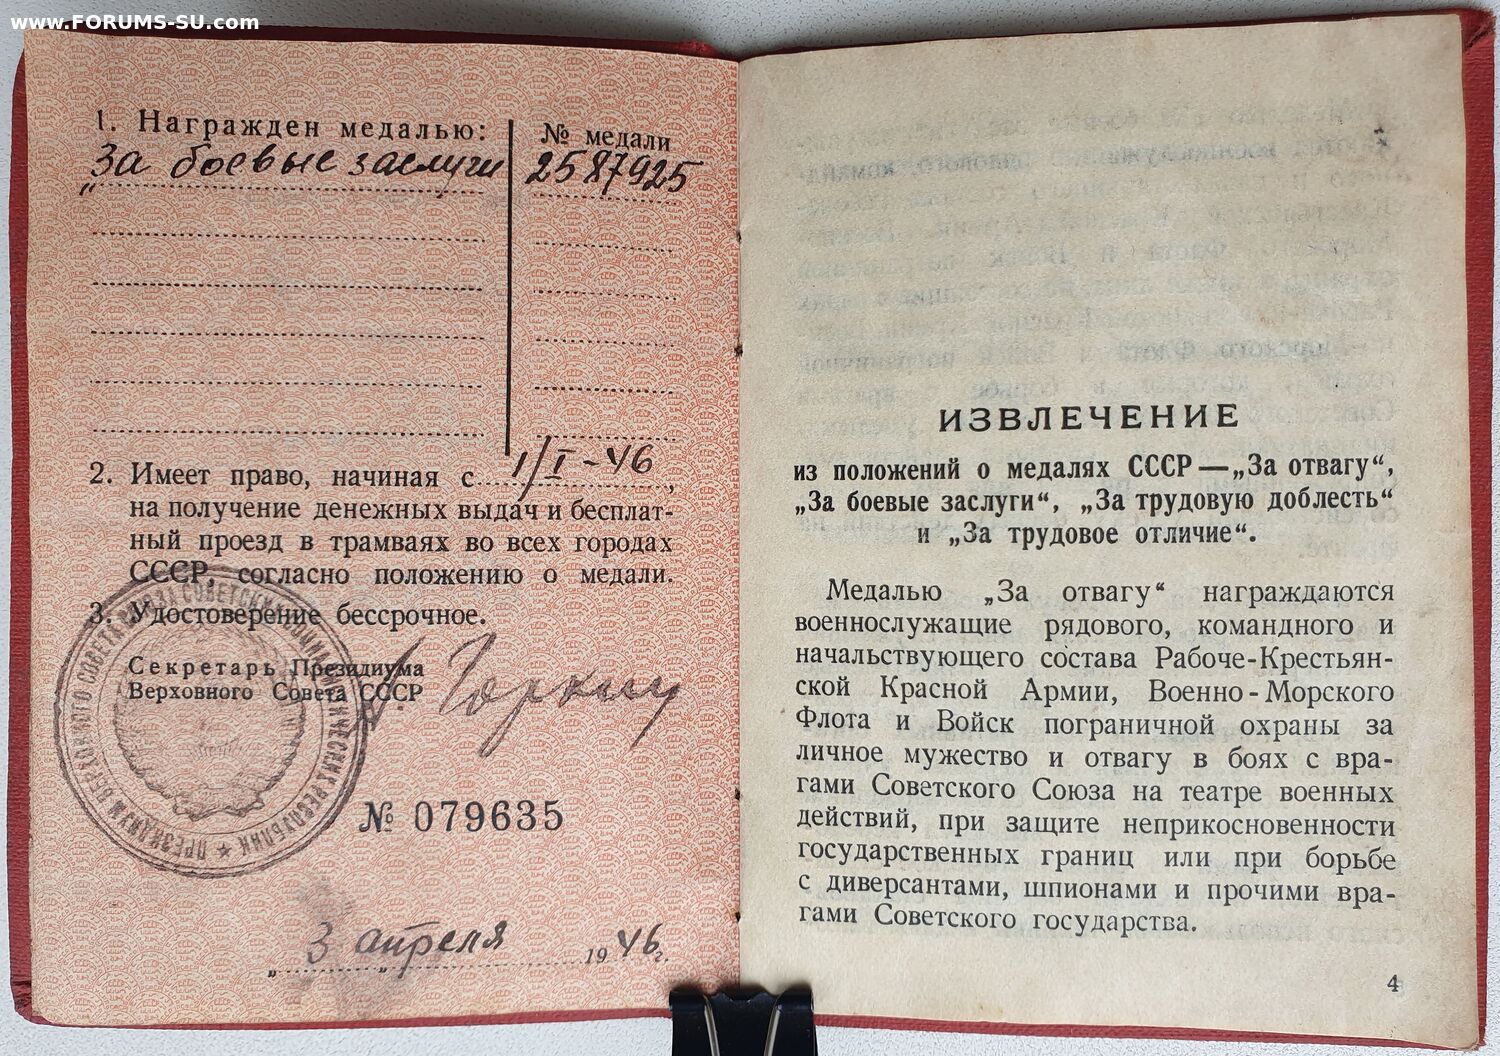 www.FORUMS-SU.com
1. Награжден медалью:
№ медали
„За боевые заслуги
2587925
2. Имеет право, начиная с 1/I-46,
на получение денежных выдач и бесплат-
ный проезд в трамваях во всех городах
СССР, согласно положению о медали.
3. Удостоверение бессрочное.
Секретарь Президиума
Верховного Совета СССР
А. Горкин
ПРЕЗИДИУМ ВЕРХОВНОГО СОВЕТА СОЮЗА СОВЕТСКИХ СОЦИАЛИСТИЧЕСКИХ РЕСПУБЛИК
№ 079635
„3 апреля 1946г.
ИЗВЛЕЧЕНИЕ
из положений о медалях СССР—„За отвагу“,
„За боевые заслуги“, „За трудовую доблесть“
и „За трудовое отличие“.
Медалью „За отвагу“ награждаются
военнослужащие рядового, командного и
начальствующего состава Рабоче-Крестьян-
ской Красной Армии, Военно-Морского
Флота и Войск пограничной охраны за
личное мужество и отвагу в боях с вра-
гами Советского Союза на театре военных
действий, при защите неприкосновенности
государственных границ или при борьбе
с диверсантами, шпионами и прочими вра-
гами Советского государства.
4